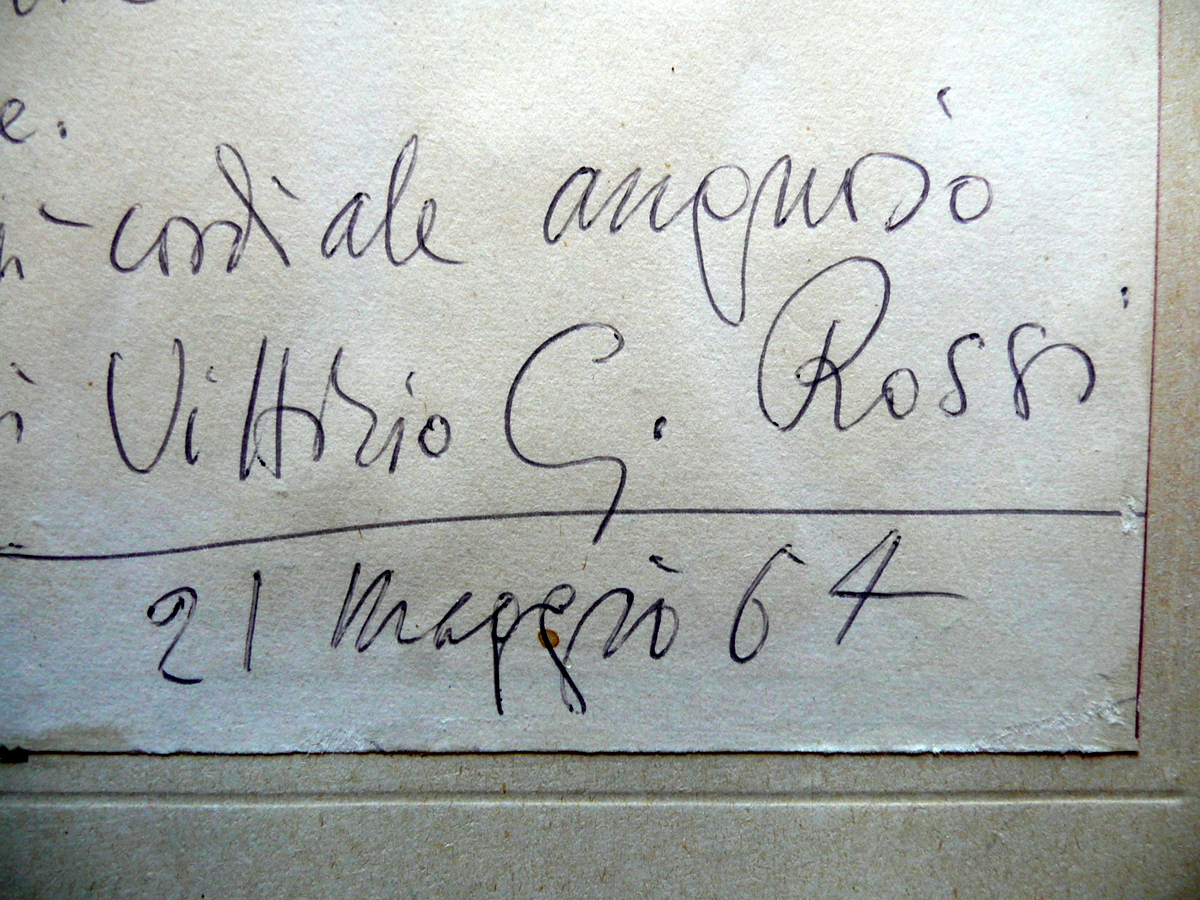 e.
cordiale augurio
Vittorio G. Rossi
21 Maggio 64